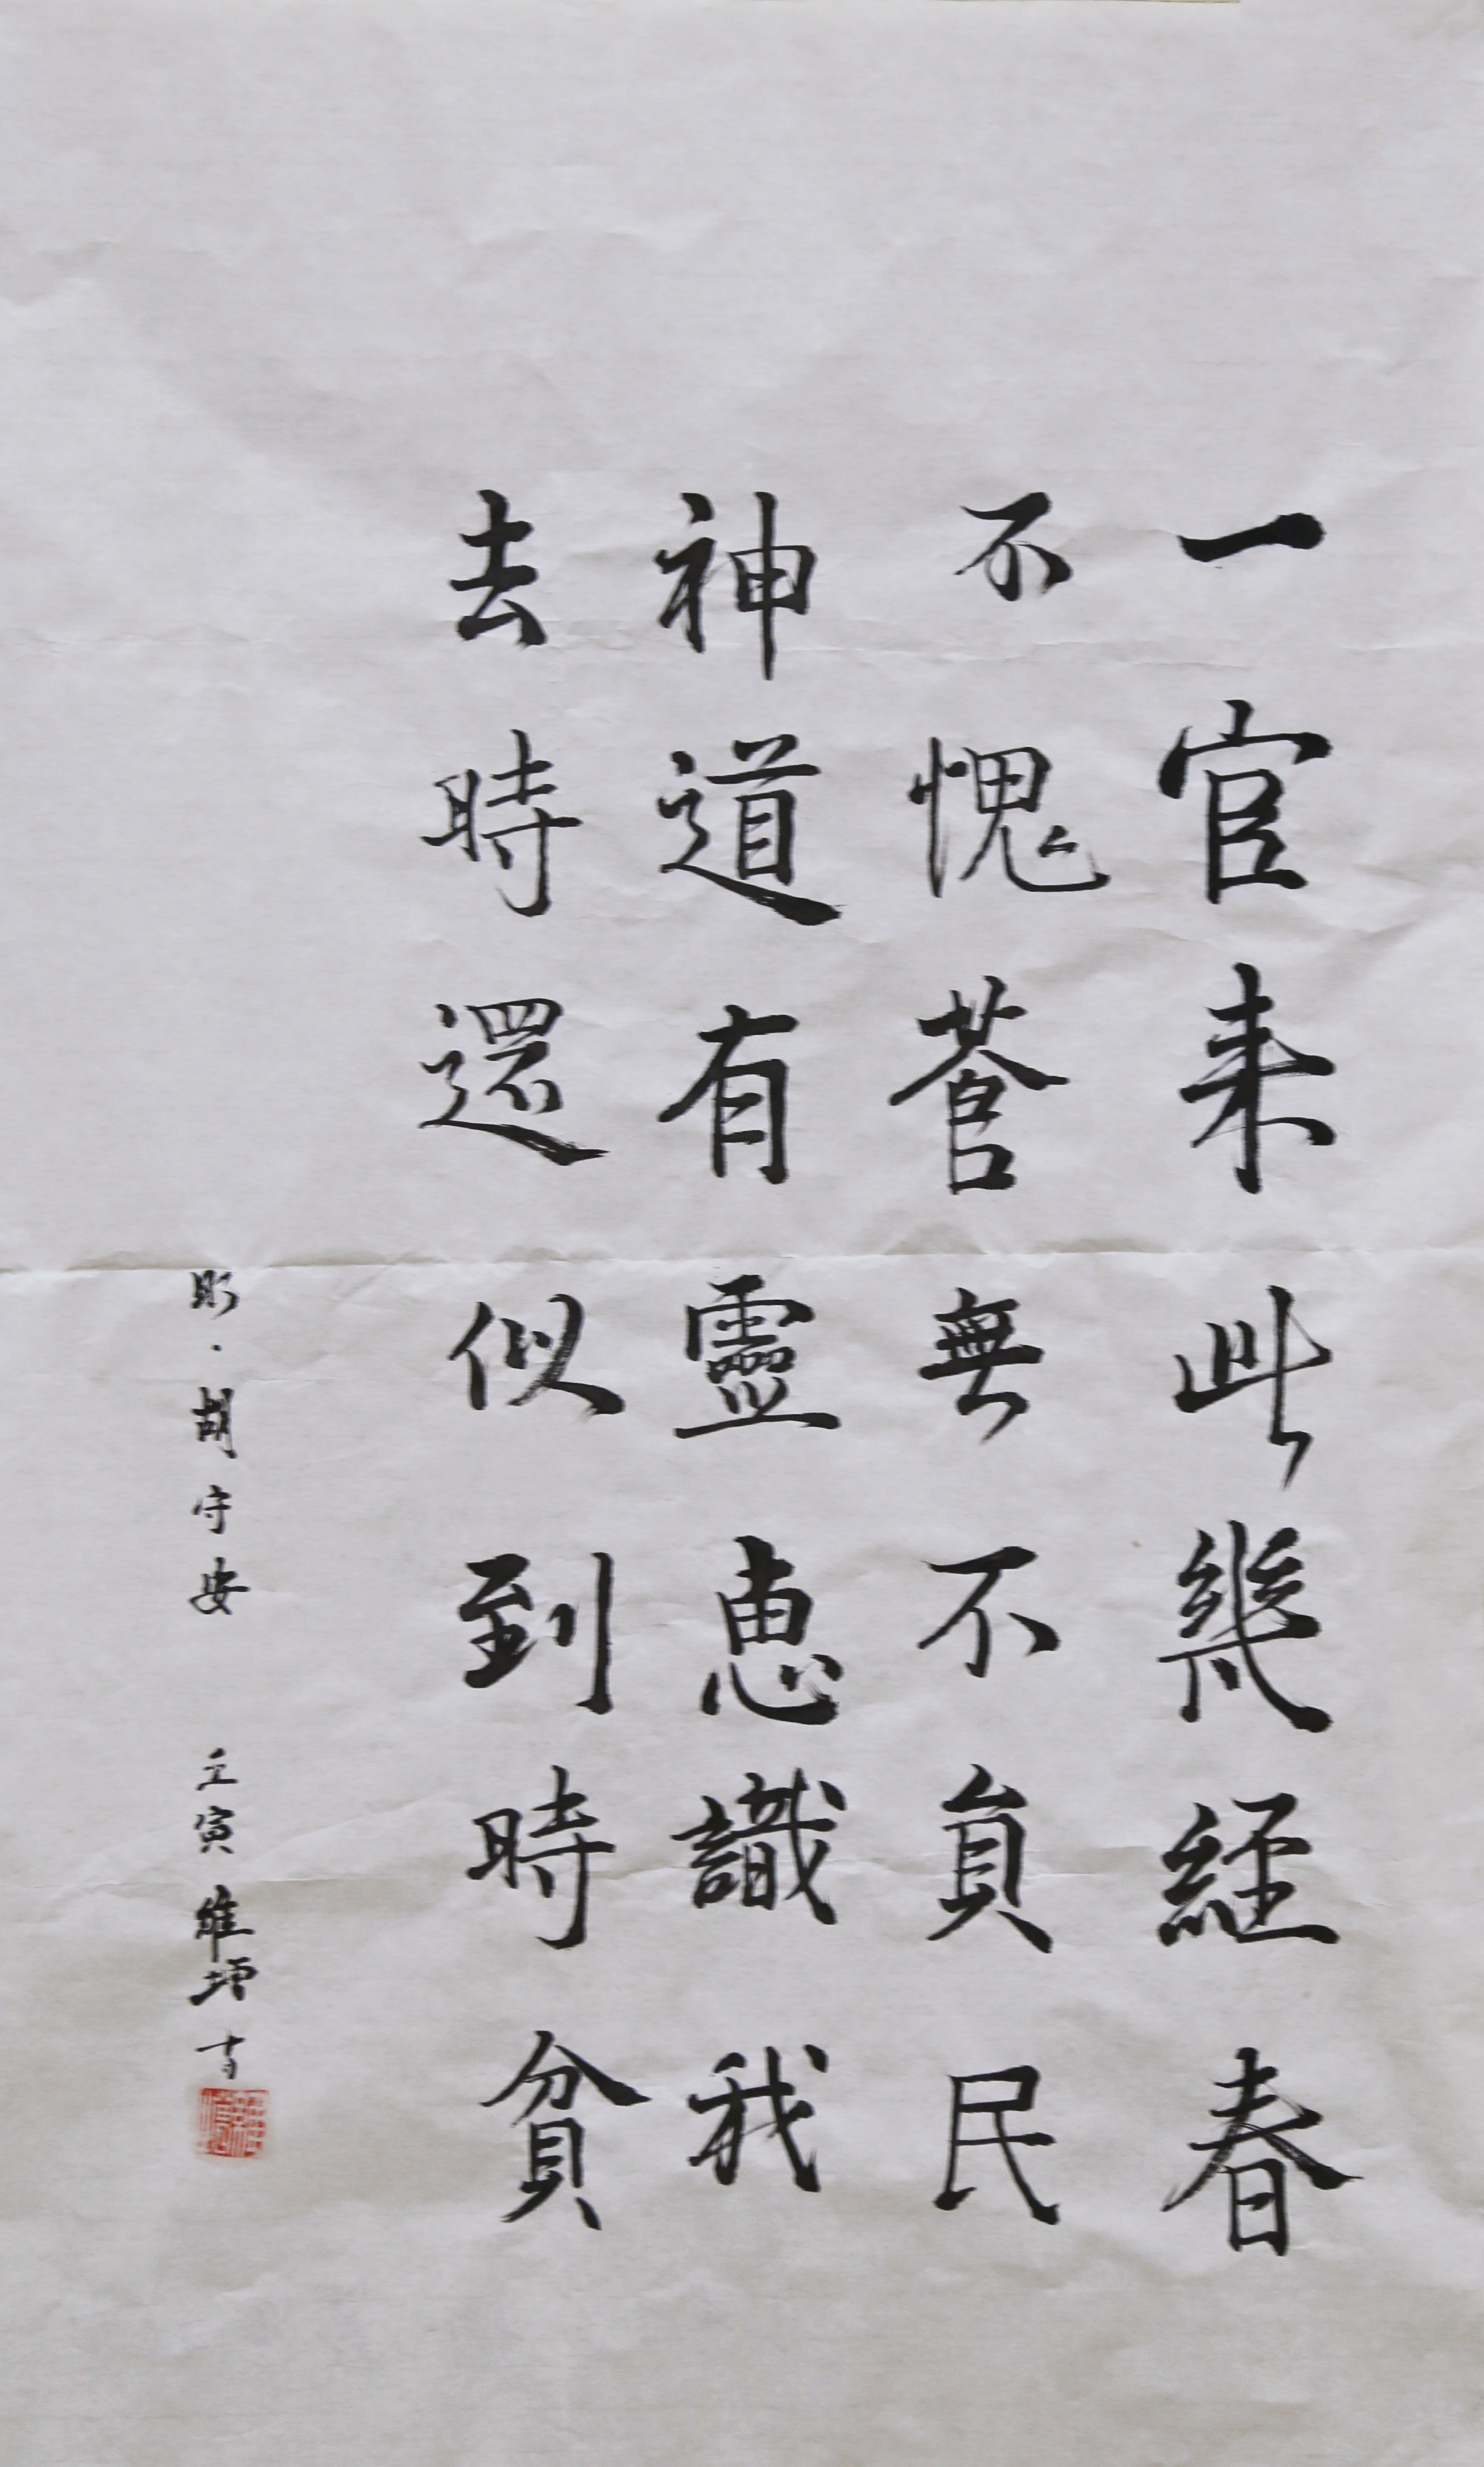 一官来此幾經春
不愧蒼無不負民
神道有靈惠識我
去時還似到時貧
明·胡守安 壬寅 維坤书